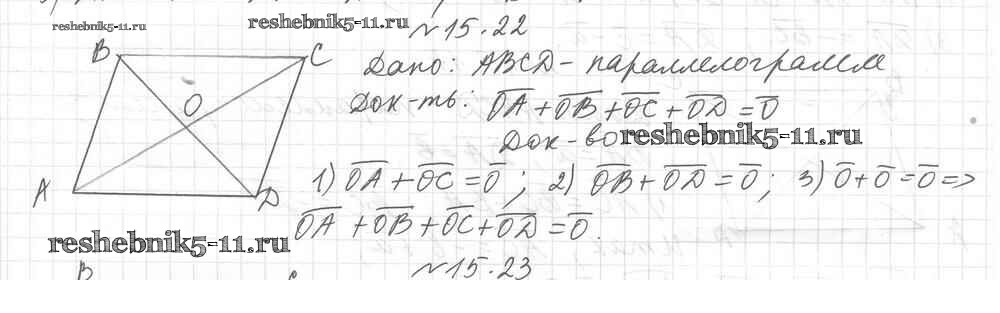 reshebnik5-11.ru
reshebnik5-11.ru
№15.22
B C
Дано: ABCD - параллелограмм
O
Док-ть: O̅A̅ + O̅B̅ + O̅C̅ + O̅D̅ = 0̅
Док-во
reshebnik5-11.ru
A D
1) O̅A̅ + O̅C̅ = 0̅; 2) O̅B̅ + O̅D̅ = 0̅; 3) 0̅ + 0̅ = 0̅ =>
O̅A̅ + O̅B̅ + O̅C̅ + O̅D̅ = 0̅.
reshebnik5-11.ru
№15.23